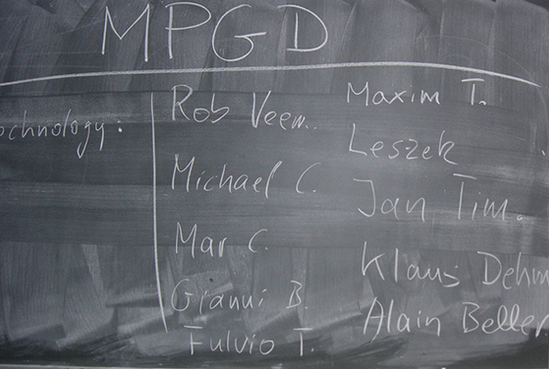 MPGD
ochnology:
Rob Veen..
Michael C.
Mar C.
Gianni B.
Fulvio T.
Maxim T.
Leszek
Jan Tim.
Klaus Dehm
Alain Beller